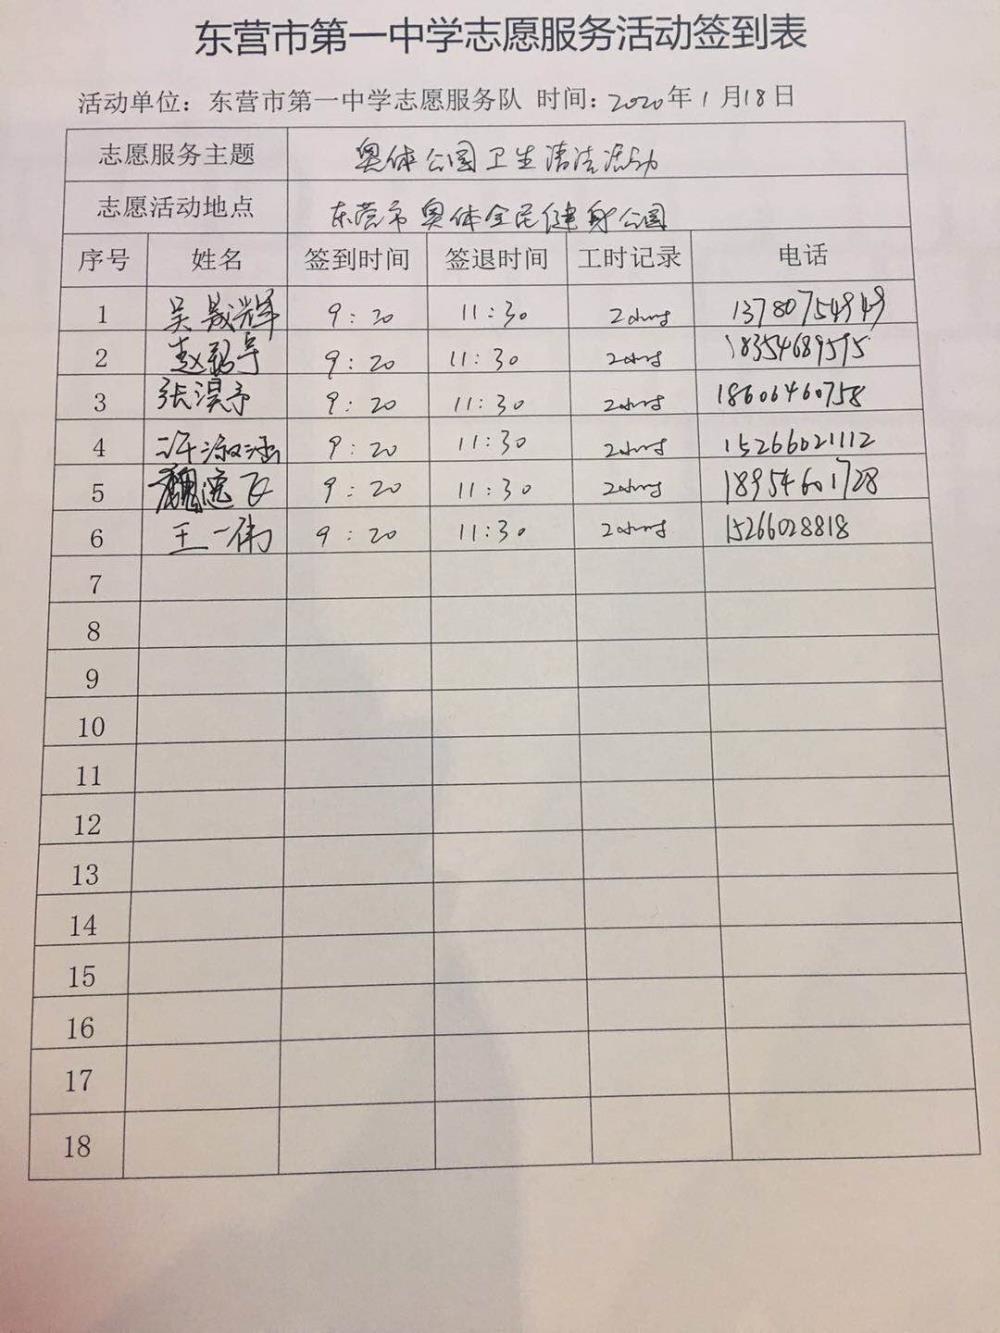 东营市第一中学志愿服务活动签到表
活动单位：东营市第一中学志愿服务队 时间：2020年1月18日
志愿服务主题 奥体公园卫生清洁活动
志愿活动地点 东营市奥体全民健身公园
序号 姓名 签到时间 签退时间 工时记录 电话
1 吴晟辉 9:20 11:30 13780754949
2 赵 9:20 11:30 18354689595
3 张淏予 9:20 11:30 18606460758
4 许淑涵 9:20 11:30 15266021112
5 魏逸飞 9:20 11:30 18954601728
6 王一伟 9:20 11:30 15266028818
7
8
9
10
11
12
13
14
15
16
17
18